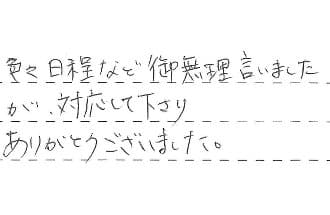 色々日程など御無理言いました
が、対応して下さり
ありがとうございました。